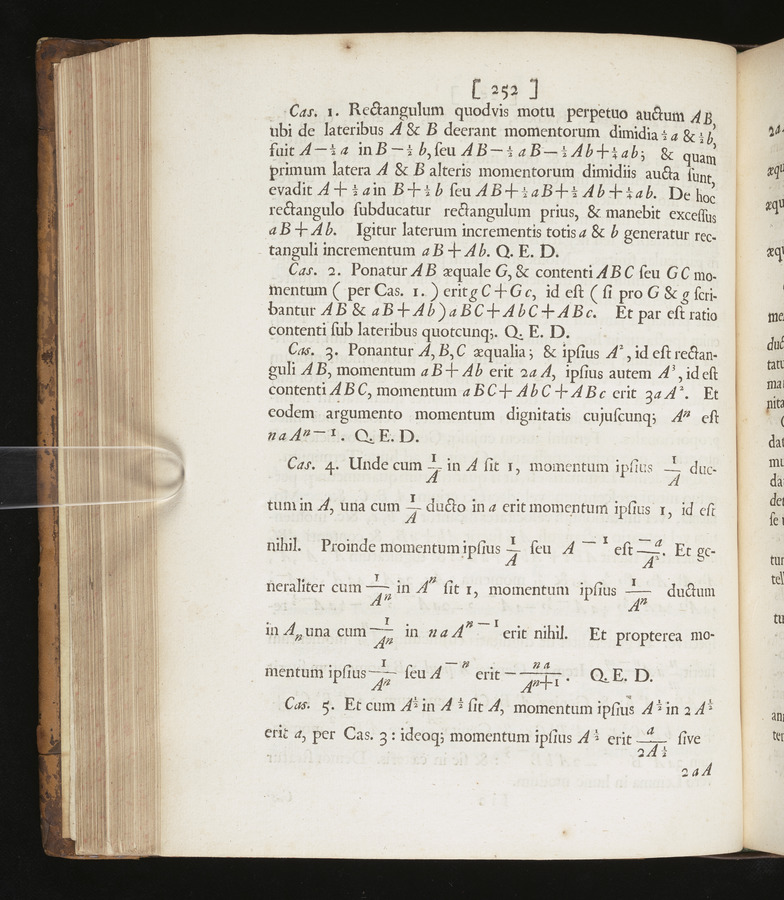 [ 252 ]
Cas. 1. Rectangulum quodvis motu perpetuo auctum AB,
ubi de lateribus A & B deerant momentorum dimidia ½ a & ½ b,
fuit A — ½ a in B — ½ b, ſeu AB — ½ aB — ½ Ab + ¼ ab; & quam
primum latera A & B alteris momentorum dimidiis aucta ſunt,
evadit A + ½ a in B + ½ b ſeu AB + ½ aB + ½ Ab + ¼ ab. De hoc
rectangulo ſubducatur rectangulum prius, & manebit exceſſus
aB + Ab. Igitur laterum incrementis totis a & b generatur rec-
tanguli incrementum aB + Ab. Q. E. D.
Cas. 2. Ponatur AB æquale G, & contenti ABC ſeu GC mo-
mentum ( per Cas. 1. ) erit gC + Gc, id eſt ( ſi pro G & g ſcri-
bantur AB & aB + Ab ) aBC + AbC + ABc. Et par eſt ratio
contenti ſub lateribus quotcunq;. Q. E. D.
Cas. 3. Ponantur A, B, C æqualia; & ipſius A², id eſt rectan-
guli AB, momentum aB + Ab erit 2aA, ipſius autem A³, id eſt
contenti ABC, momentum aBC + AbC + ABc erit 3aA². Et
eodem argumento momentum dignitatis cujuſcunq; Aⁿ eſt
naAⁿ⁻¹. Q. E. D.
Cas. 4. Unde cum 1/A in A ſit 1, momentum ipſius 1/A duc-
tum in A, una cum 1/A ducto in a erit momentum ipſius 1, id eſt
nihil. Proinde momentum ipſius 1/A ſeu A⁻¹ eſt —a/A². Et ge-
neraliter cum 1/Aⁿ in Aⁿ ſit 1, momentum ipſius 1/Aⁿ ductum
in Aₙ una cum 1/Aⁿ in naAⁿ⁻¹ erit nihil. Et propterea mo-
mentum ipſius 1/Aⁿ ſeu A⁻ⁿ erit — na/Aⁿ⁺¹. Q. E. D.
Cas. 5. Et cum A½ in A½ ſit A, momentum ipſius A½ in 2A½
erit a, per Cas. 3: ideoq; momentum ipſius A½ erit a/2A½ ſive
2aA